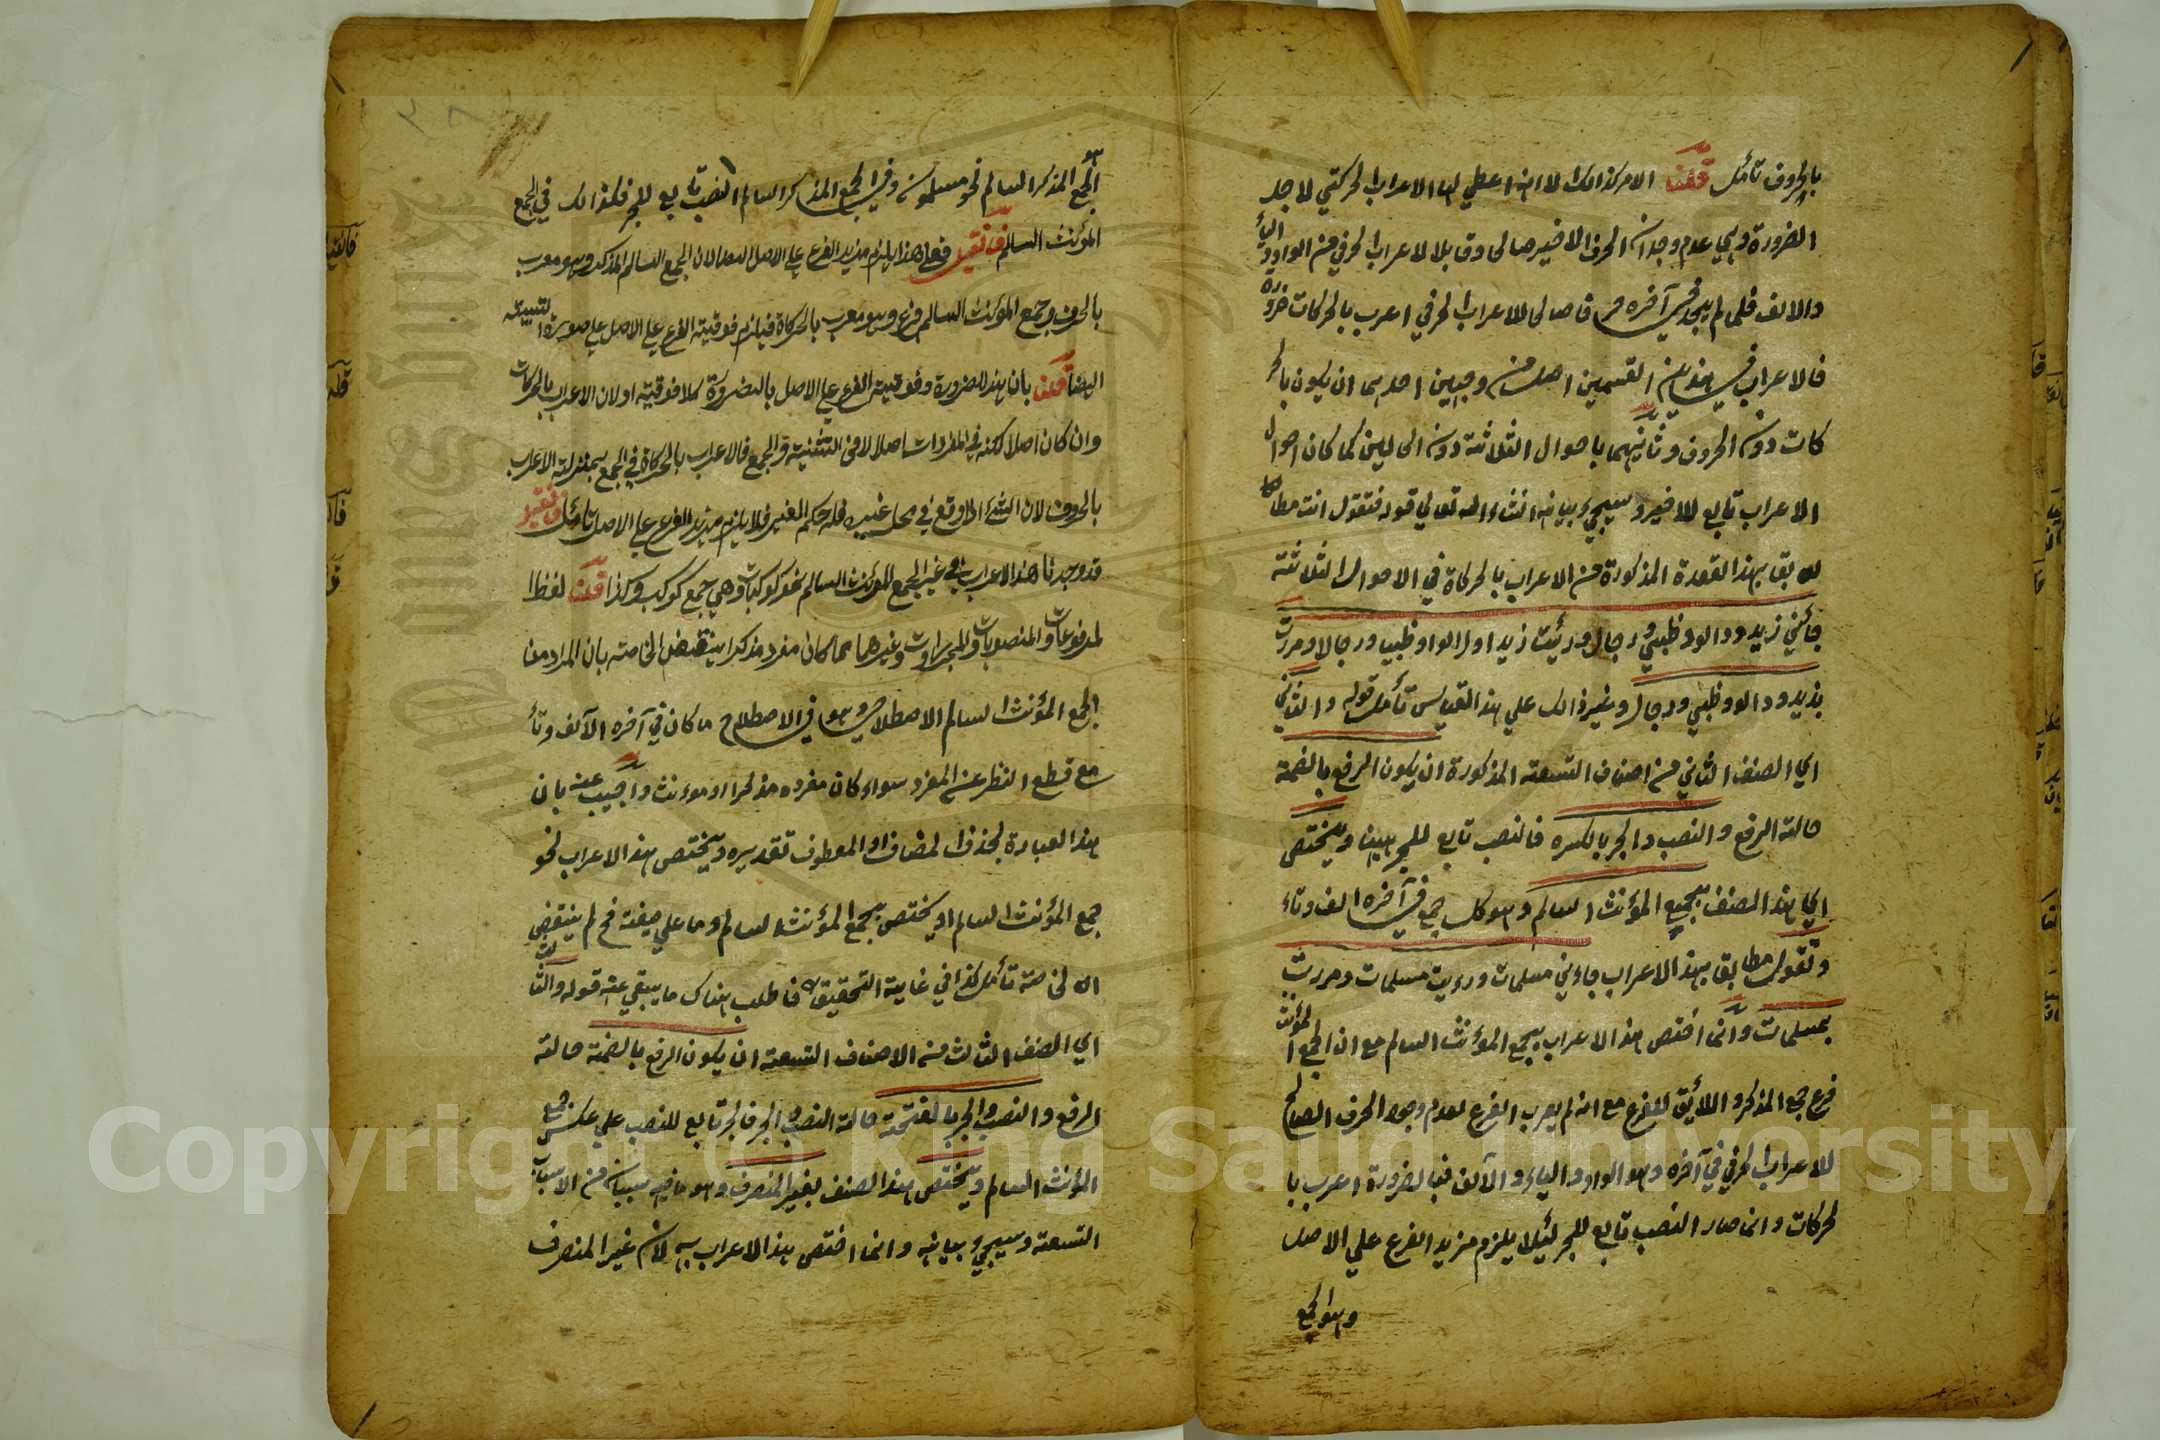 بالحروف تأمل قلنا الامر كذالك لاانه اعطي لها الاعراب الحركتي لاجل
الضرورة وهي عدم وجدان الحرف الاخير صالحا وقابلا للاعراب الحرفي من الواو والياء
والالف فلما لم يجد في آخره حرفا صالحا للاعراب الحرفي اعرب بالحركات ضرورة
فالاعراب في هذين القسمين اصل من وجهين احدهما ان يكون بالحر
كات دون الحروف وثانيهما باحوال الثلاثة دون الحالين كما كان احوال
الاعراب تابع للاخير وسيجيء بيانه انشاء الله تعالي قوله فتقول انت مطا
بق بهذا القعدة المذكورة من الاعراب بالحركاة في الاحوال الثلاثة
جائني زيد ودالو وظبي ورجال ورئيت زيدا ودلوا وظبيا ورجالا ومررت
بزيد ودالو وظبي ورجال وغير ذالك علي هذا القياس تأمل قوله والثاني
اي الصنف الثاني من اصناف التسعة المذكورة ان يكون الرفع بالضمة
حالة الرفع والنصب والجر بالكسره فالنصب تابع للجر هيهنا ويختص
اي هذا الصنف بجمع المؤنث السالم وهو كل جمع في آخره الف وتاء
وتقول مطابق بهذا الاعراب جاءني مسلمات ورءيت مسلمات ومررت
بمسلمات وانما اختص هذا الاعراب بجمع المؤنث السالم مع ان الجمع المؤنث
فرع جمع المذكر واللأيق للفرع مع انه لم يعرب الفرع لعدم وجود الحرف الصالح
للاعراب الحرفي في آخره وهو الواو والياء والآلف فبالضرورة اعرب با
لحركات وانما صار النصب تابع للجر لئيلا يلزم مزيد الفرع علي الاصل
وهو الجمع
الجمع المذكر السالم نحو مسلمون وفي الجمع المذكر السالم النصب تابع للجر فكذالك في الجمع
المؤنث السالم فان قيل فعلي هذا يلزم مزيد الفرع علي الاصل ايضا لان الجمع السالم المذكر وهو معرب
بالحرف وجمع المؤنث السالم فرع وهو معرب بالحركاة فيلزم فوقية الفرع علي الاصل علي صورة التبيعة
ايضا قلنا بان هذا لضرورة وفوقية الفرع علي الاصل بالضرورة كلا فوقية او لان الاعراب بالحركات
وان كان اصلا لكنه في المفردات اصلا لا في التثنية والجمع فالاعراب بالحركاة في الجمع بمنزلة الاعراب
بالحروف لان الشيء اذا وقع في محل غيره فله حكم الغير فلا يلزم مزيد الفرع علي الاصل تأمل فان قيل
قد وجدنا هذا الاعراب في غير الجمع المؤنث السالم نحو كوكبات وهي جمع كوكب وكذا قلنا لفظ ا
لمرفوعات والمنصوبات والمجرورات وغيرهما مما كان مفرد مذكرا ينتقض الخاصة بان المراد من
الجمع المؤنث السالم الاصطلاحي وهو في الاصطلاح ما كان في آخره الآلف وتأ
مع قطع النظر عن المفرد سواء كان مفرده مذكرا او موءنث واجيب عنه بان
هذا العبارة بحذف المضاف او المعطوف تقديره ويختص هذا الاعراب نحو
جمع المؤنث السالم او يختص بجمع المؤنث السالم وما علي صيغة فح لم ينتقض
الخاصة تأمل كذا في غاية التحقيق فاطلب هناك ما يبقي عنه قوله والثالث
اي الصنف الثالث من الاصناف التسعة ان يكون الرفع بالضمة حالة
الرفع والنصب والجر بالفتحة حالة النصب والجر فالجر تابع للنصب علي عكس جمع
المؤنث السالم ويختص هذا الصنف بغير المنصرف وهو ما فيه سببان من الاسباب
التسعة وسيجيء بيانه وانما اختص هذا الاعراب به لان غير المنصرف
Copyright © King Saud University